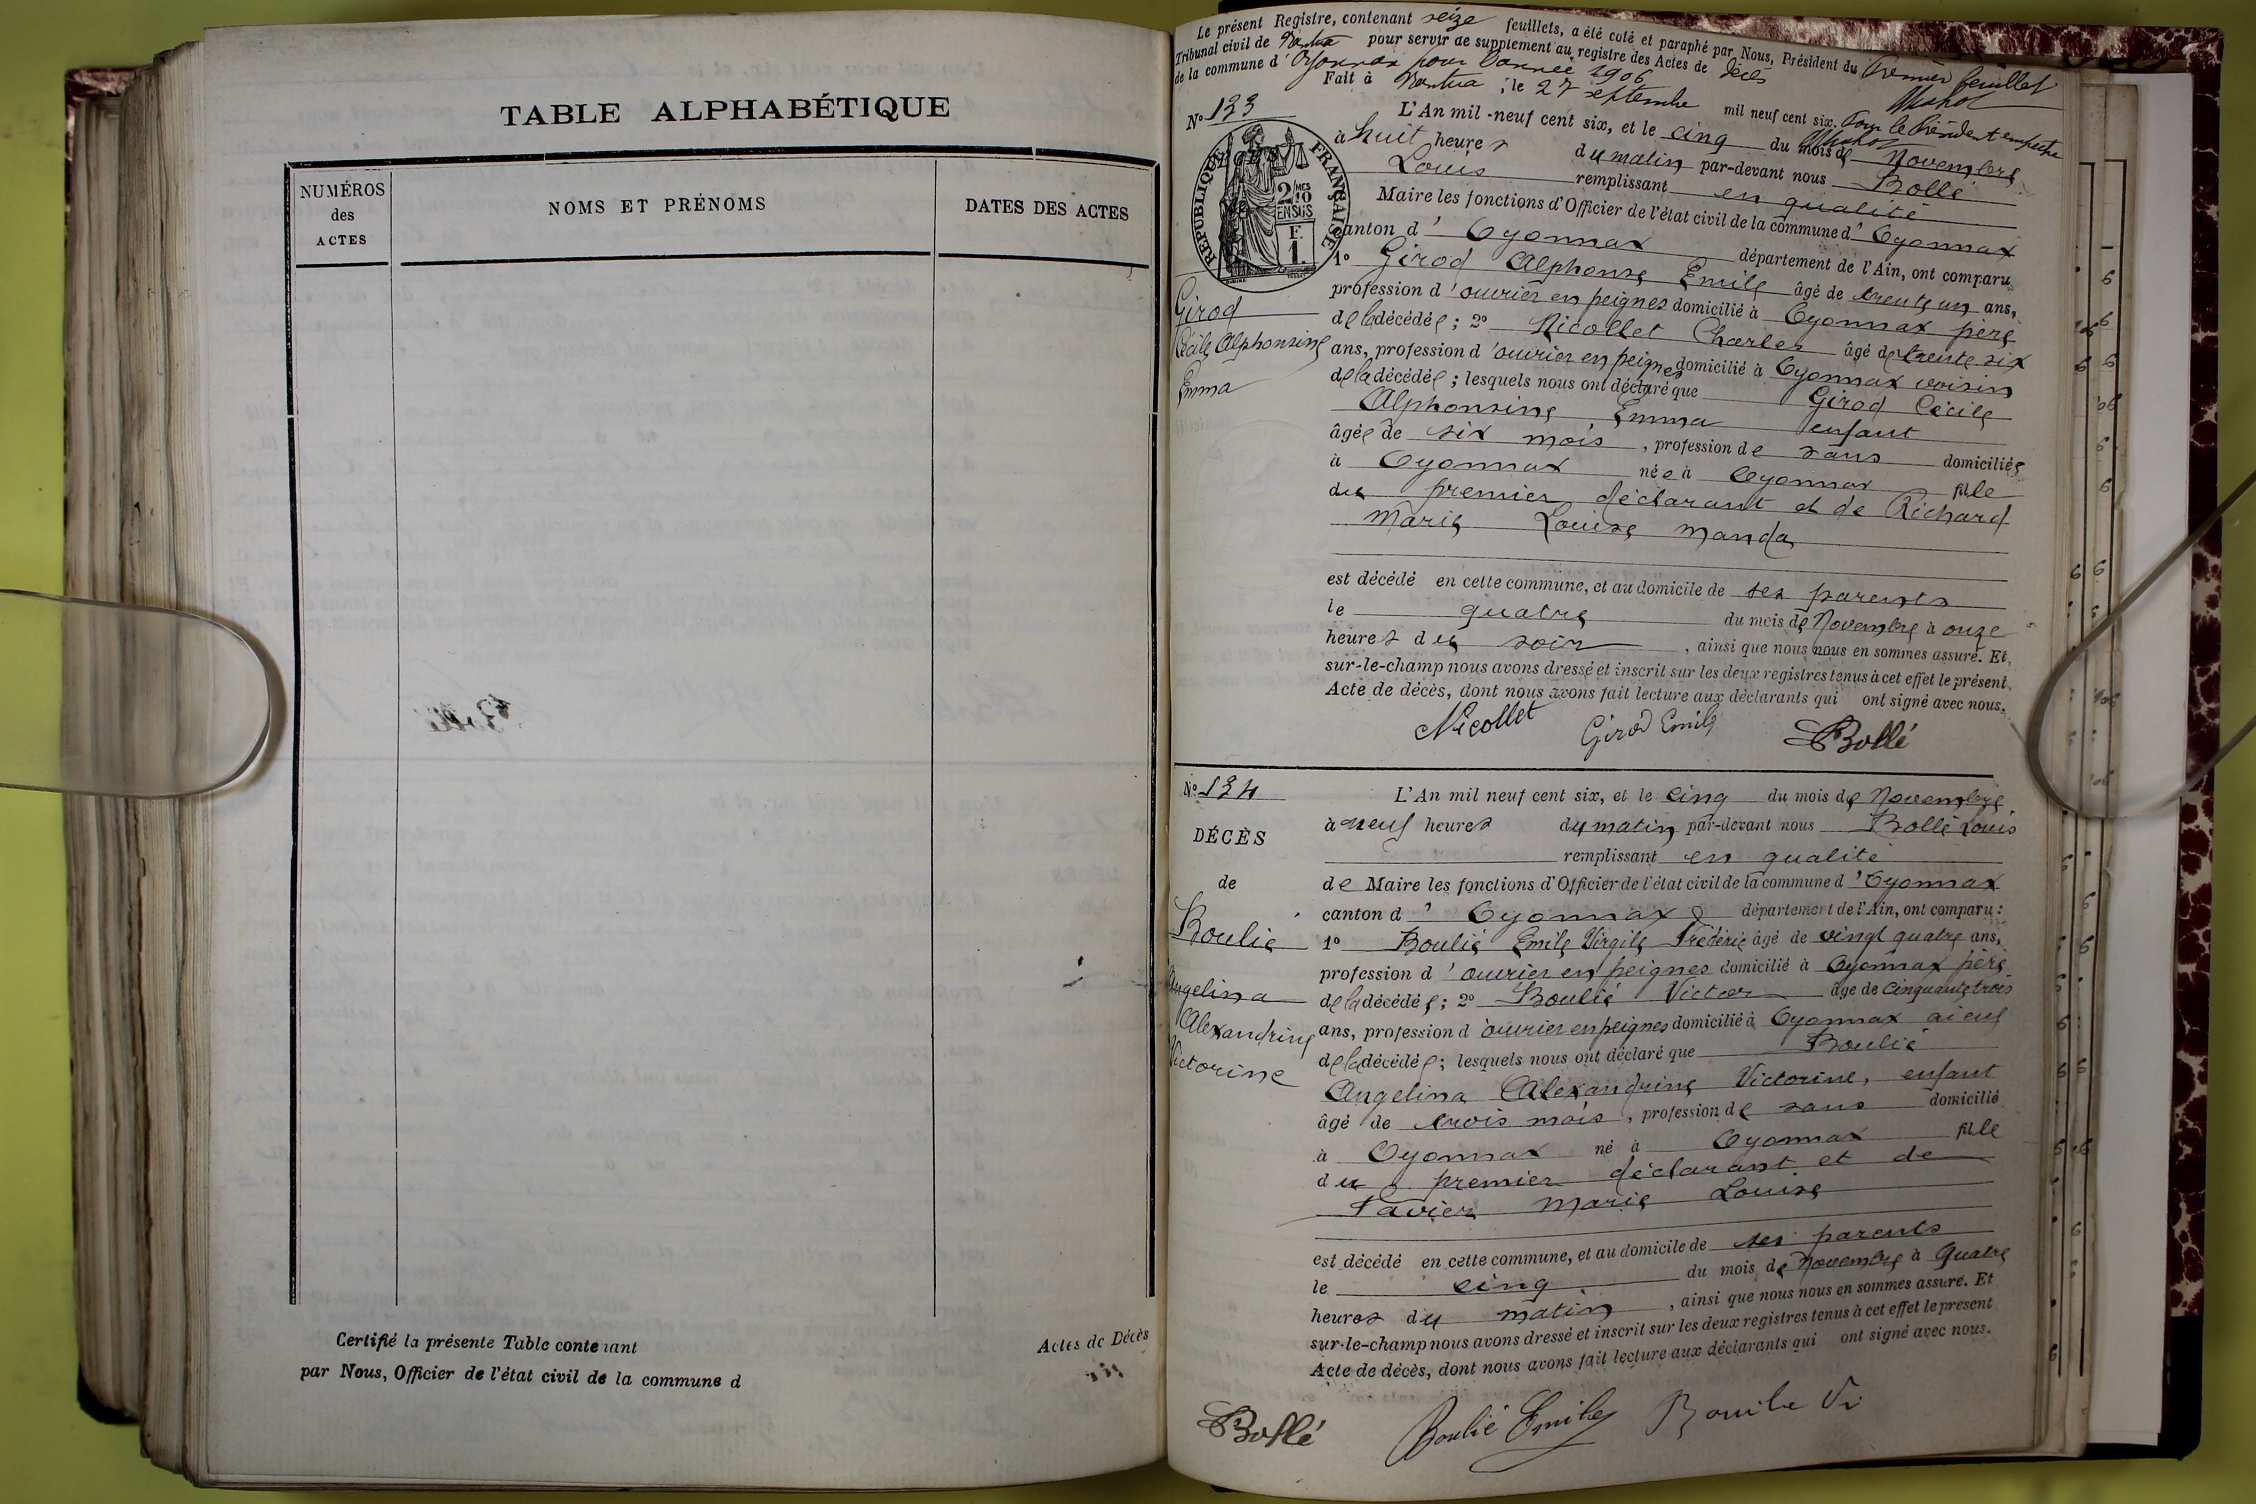 TABLE ALPHABÉTIQUE
NUMÉROS
des
ACTES
NOMS ET PRÉNOMS
DATES DES ACTES
Certifié la présente Table contenant
Actes de Décès
par Nous, Officier de l'état civil de la commune d
Le présent Registre, contenant seize feuillets, a été coté et paraphé par Nous, Président du
Tribunal civil de Nantua pour servir de supplément au registre des Actes de Décès
de la commune d'Oyonnax pour l'année 1906
Premier feuillet
Fait à Nantua, le 27 septembre mil neuf cent six. Pour le Président empêché
No 133
RÉPUBLIQUE FRANÇAISE
L'An mil neuf cent six, et le cinq du mois de Novembre
à huit heures du matin par-devant nous Bollé
Louis remplissant en qualité
Maire les fonctions d'Officier de l'état civil de la commune d'Oyonnax
canton d'Oyonnax département de l'Ain, ont comparu
1o Girod Alphonse Emile âgé de trente un ans,
profession d'ouvrier en peignes domicilié à Oyonnax père
de la décédée ; 2o Nicollet Charles âgé de trente six
ans, profession d'ouvrier en peignes domicilié à Oyonnax voisin
de la décédée ; lesquels nous ont déclaré que Girod Cécile
Alphonsine Emma enfant
âgée de six mois, profession de sans domiciliée
à Oyonnax née à Oyonnax fille
du premier déclarant et de Richard
Marie Louise Manda
est décédé en cette commune, et au domicile de ses parents
le quatre du mois de Novembre à onze
heures du soir, ainsi que nous nous en sommes assuré. Et
sur-le-champ nous avons dressé et inscrit sur les deux registres tenus à cet effet le présent
Acte de décès, dont nous avons fait lecture aux déclarants qui ont signé avec nous.
Girod
Cécile Alphonsine
Emma
Nicollet Girod Emile Bollé
No 134
DÉCÈS
de
Boulié
Angelina
Alexandrine
Victorine
L'An mil neuf cent six, et le cinq du mois de Novembre
à neuf heures du matin par-devant nous Bollé Louis
remplissant en qualité
de Maire les fonctions d'Officier de l'état civil de la commune d'Oyonnax
canton d'Oyonnax département de l'Ain, ont comparu :
1o Boulié Emile Virgile Frédéric âgé de vingt quatre ans,
profession d'ouvrier en peignes domicilié à Oyonnax père
de la décédée ; 2o Boulié Victor âgé de cinquante trois
ans, profession d'ouvrier en peignes domicilié à Oyonnax aieul
de la décédée ; lesquels nous ont déclaré que Boulié
Angelina Alexandrine Victorine, enfant
âgé de trois mois, profession de sans domicilié
à Oyonnax né à Oyonnax fille
du premier déclarant et de
Tavier Marie Louise
est décédé en cette commune, et au domicile de ses parents
le cinq du mois de Novembre à quatre
heures du matin, ainsi que nous nous en sommes assuré. Et
sur-le-champ nous avons dressé et inscrit sur les deux registres tenus à cet effet le présent
Acte de décès, dont nous avons fait lecture aux déclarants qui ont signé avec nous.
Bollé Boulié Emile